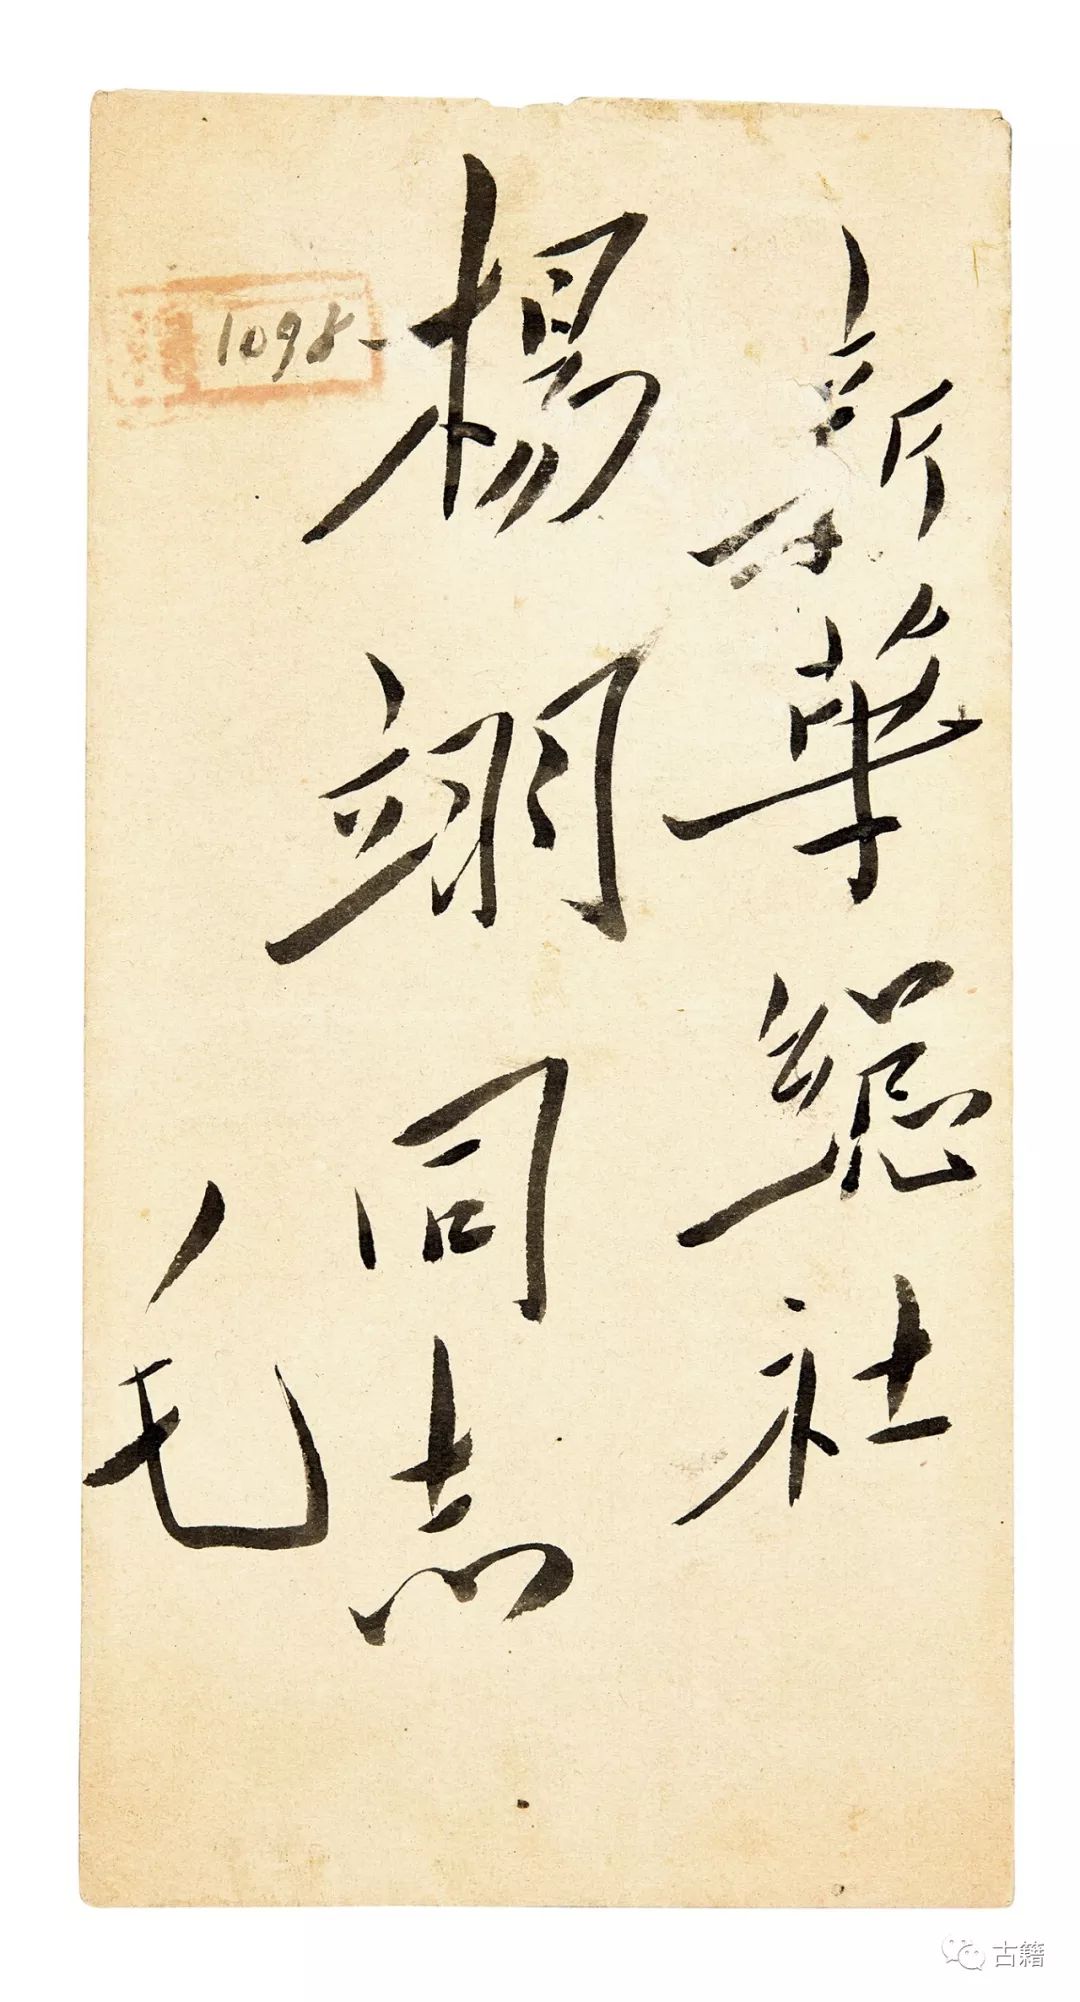 新華總社
楊翊同志
毛
1098
古籍